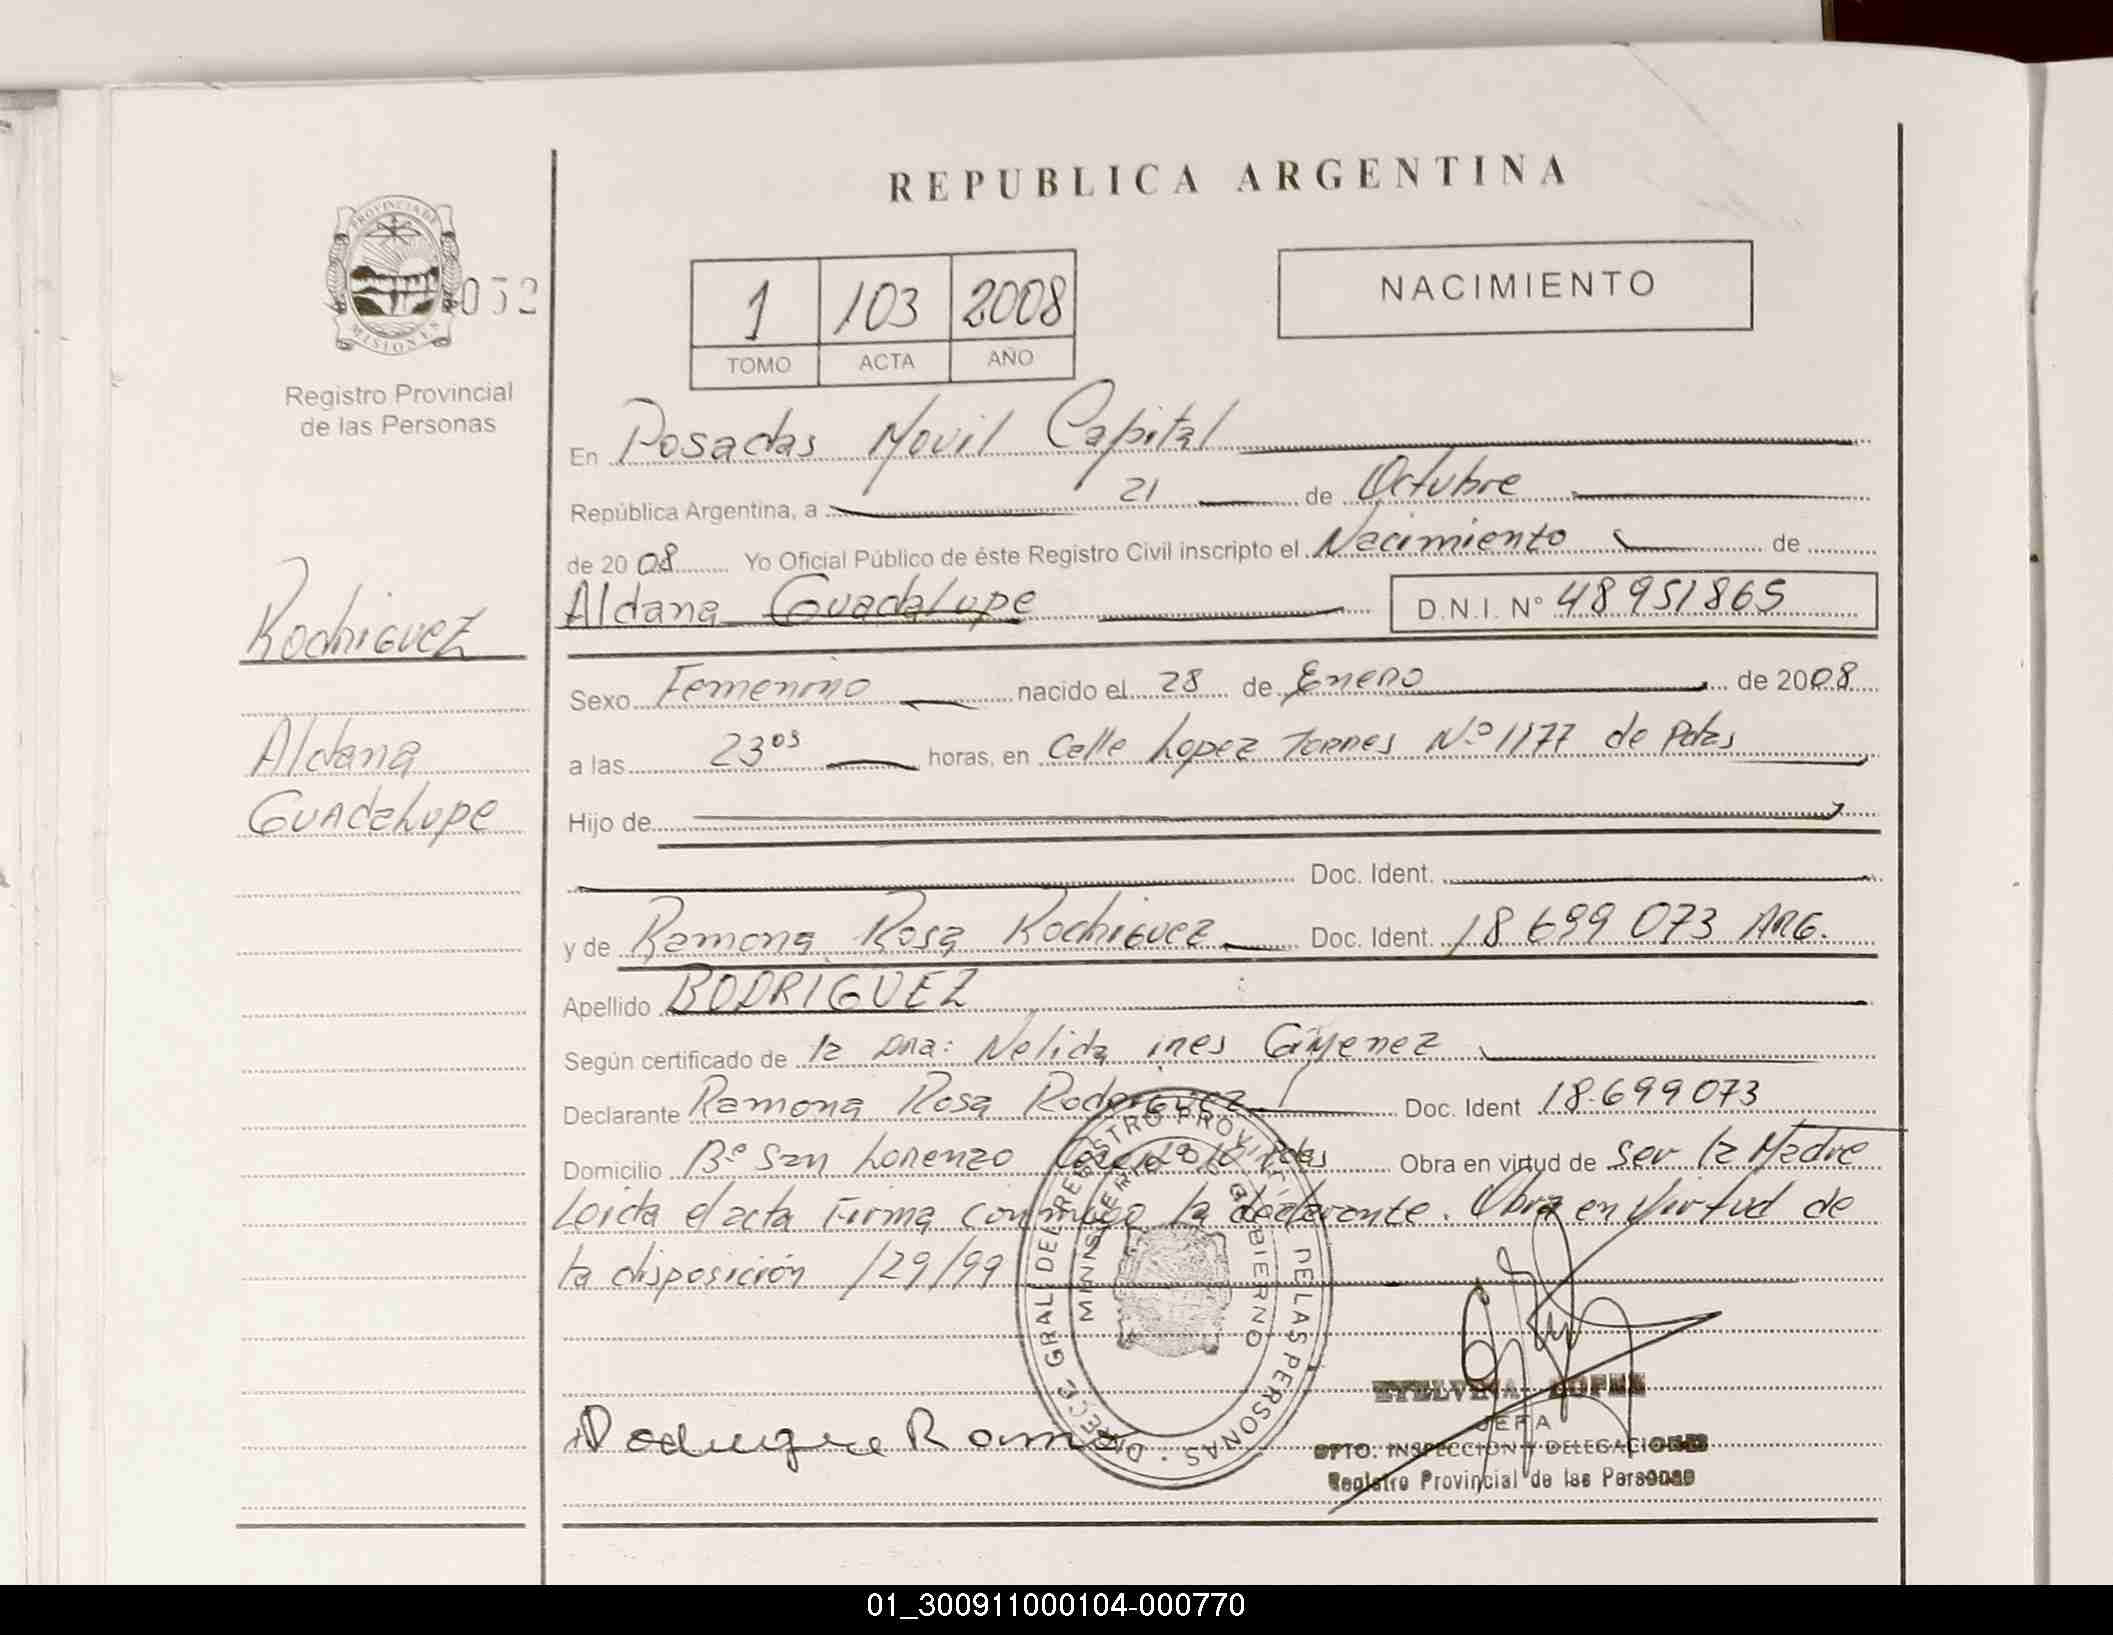 REPUBLICA ARGENTINA
PROVINCIA DE
MISIONES
052
Registro Provincial
de las Personas
1 103 2008
TOMO ACTA AÑO
NACIMIENTO
En Posadas Movil Capital
República Argentina, a 21 de Octubre
de 2008 Yo Oficial Público de éste Registro Civil inscripto el Nacimiento de
Aldana Guadalupe D.N.I. Nº 48951865
Rodriguez
Aldana
Guadalupe
Sexo Femenino nacido el 28 de Enero de 2008
a las 23 05 horas, en Calle Lopez Torres Nº 1177 de Pdas
Hijo de
Doc. Ident.
y de Ramona Rosa Rodriguez Doc. Ident. 18 699 073 ARG.
Apellido RODRIGUEZ
Según certificado de la Dra: Nelida ines Gimenez
Declarante Ramona Rosa Rodriguez Doc. Ident 18.699073
Domicilio Bº San Lorenzo Pdas Obra en virtud de ser la Madre
Leida el acta Firma conmigo la declarante. Obra en Virtud de
la disposición 129/99
DIRECC. GRAL. DEL REGISTRO PROVINCIAL DE LAS PERSONAS
MINISTERIO DE GOBIERNO
Rodrigue Ramona
ETELVINA LOPEZ
JEFA
DPTO. INSPECCION Y DELEGACIONES
Registro Provincial de las Personas
01_300911000104-000770